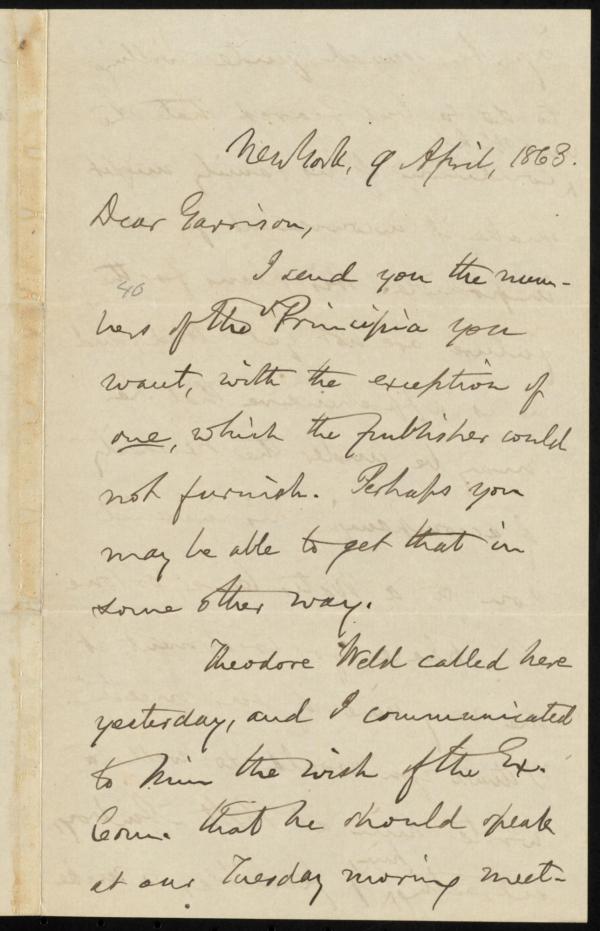 New York, 9 April, 1863.
Dear Garrison,
I send you the num-
40
bers of the Principia you
want, with the exception of
one, which the publisher could
not furnish. Perhaps you
may be able to get that in
some other way.
Theodore Weld called here
yesterday, and I communicated
to him the wish of the Ex.
Com. that he should speak
at our Tuesday morning meet-